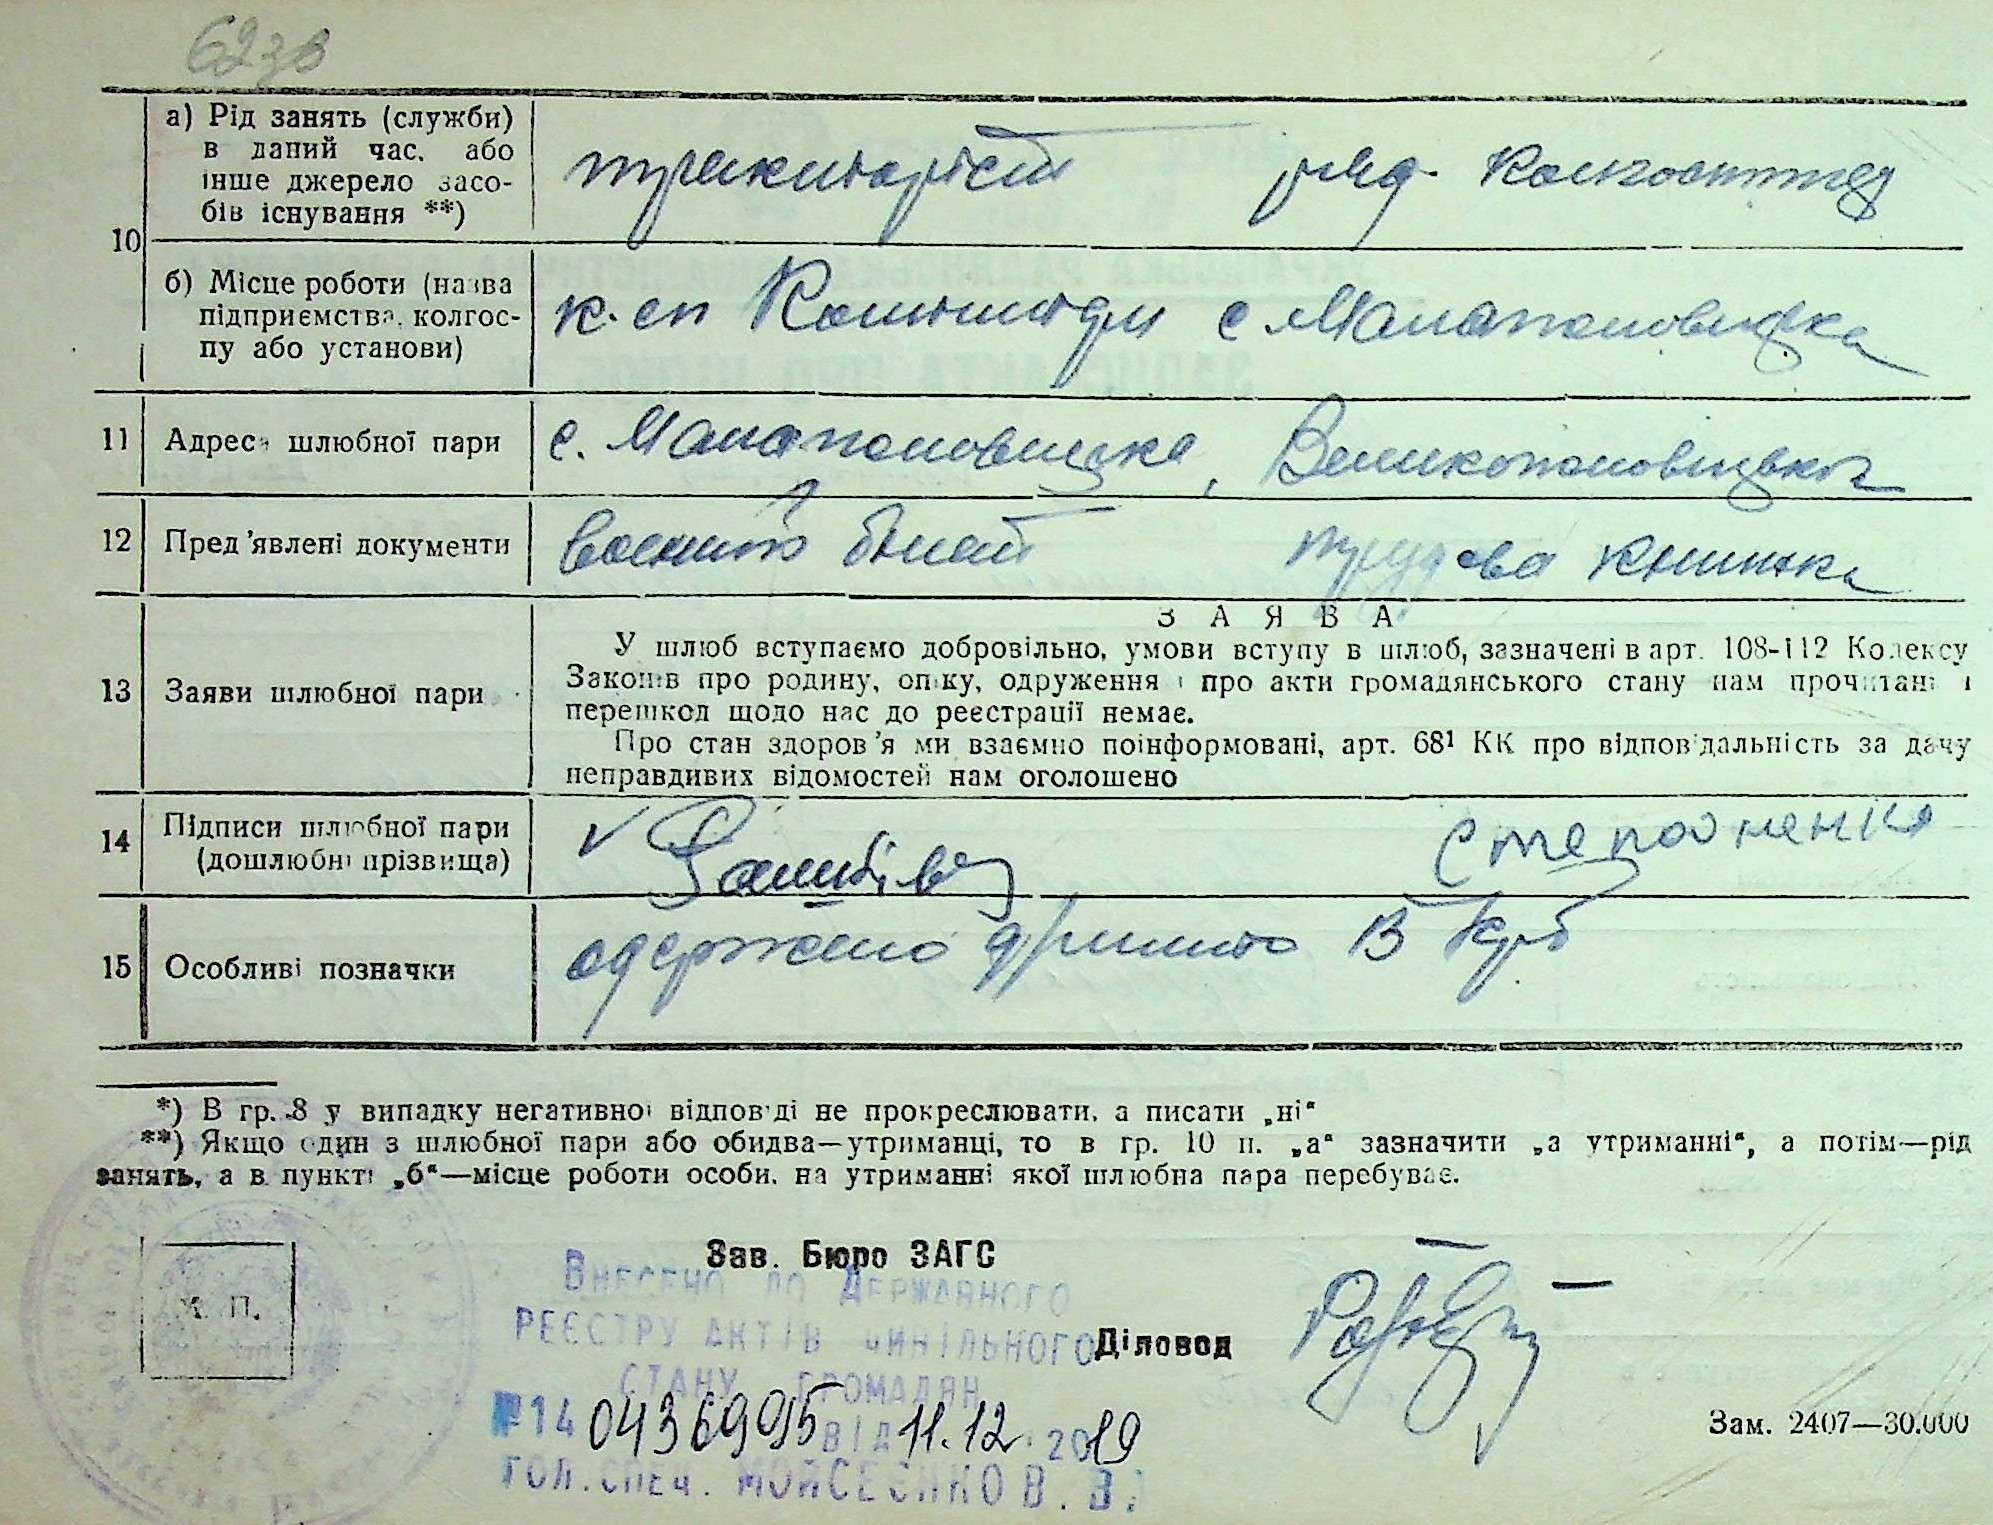 62зв
а) Рід занять (служби) в даний час, або інше джерело засобів існування **)
тракторіст
10
б) Місце роботи (назва підприємства, колгоспу або установи)
с. Малаполовецька
11 Адреса шлюбної пари с. Малаполовецька, Великополовецьког
12 Пред'явлені документи воєнний білет трудова книжка
З А Я В А
У шлюб вступаємо добровільно, умови вступу в шлюб, зазначені в арт. 108-112 Кодексу
13 Заяви шлюбної пари Законів про родину, опіку, одруження і про акти громадянського стану нам прочитані і
перешкод щодо нас до реєстрації немає.
Про стан здоров'я ми взаємно поінформовані, арт. 68¹ КК про відповідальність за дачу
неправдивих відомостей нам оголошено
14 Підписи шлюбної пари (дошлюбні прізвища) Степаненко
15 Особливі позначки одержано
*) В гр. 8 у випадку негативної відповіді не прокреслювати, а писати „ні“
**) Якщо один з шлюбної пари або обидва—утриманці, то в гр. 10 п. „а“ зазначити „а утриманні“, а потім—рід
занять, а в пункті „б“—місце роботи особи, на утриманні якої шлюбна пара перебуває.
М. П.
Зав. Бюро ЗАГС
Внесено до Державного
реєстру актів цивільного
Діловод
стану громадян
№14 04369955 від 11.12.2019
гол.спец. Мойсеєнко В. В.
Зам. 2407—30.000